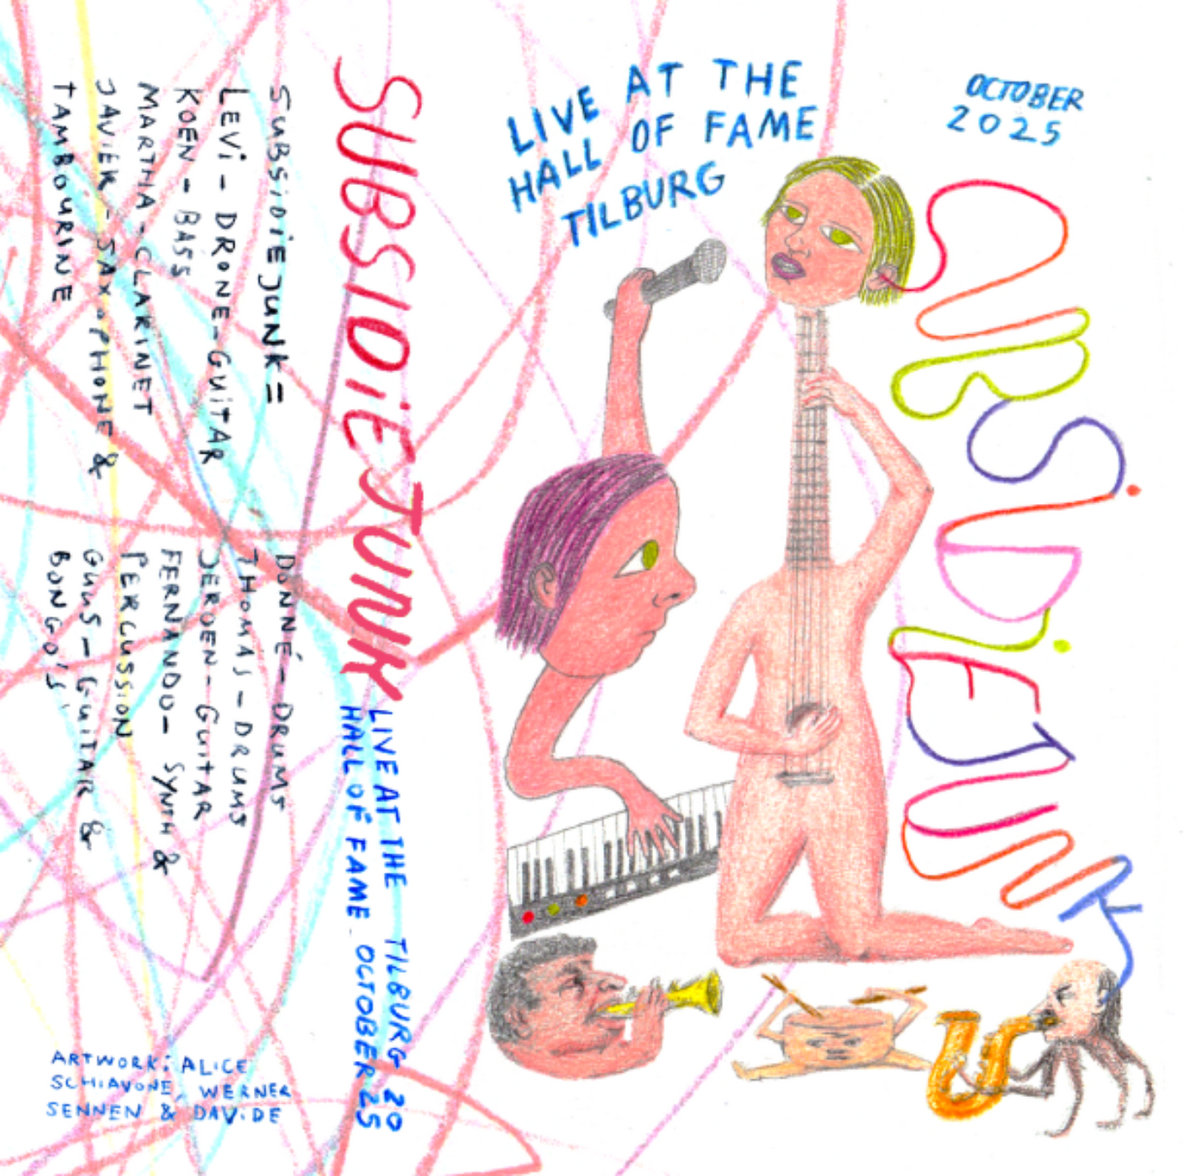 SUBSIDIEJUNK =
LEVI - DRONE-GUITAR
KOEN - BASS
MARTHA - CLARINET
JAVIER - SAXOPHONE &
TAMBOURINE
DONNÉ - DRUMS
THOMAS - DRUMS
JEROEN - GUITAR
FERNANDO - SYNTH &
PERCUSSION
GUUS - GUITAR &
BONGO'S
ARTWORK: ALICE
SCHIAVONE, WERNER
SENNEN & DAVIDE
SUBSIDIEJUNK
LIVE AT THE TILBURG 20
HALL OF FAME OCTOBER 25
LIVE AT THE
HALL OF FAME
TILBURG
OCTOBER
2025
SUBSIDIEJUNK